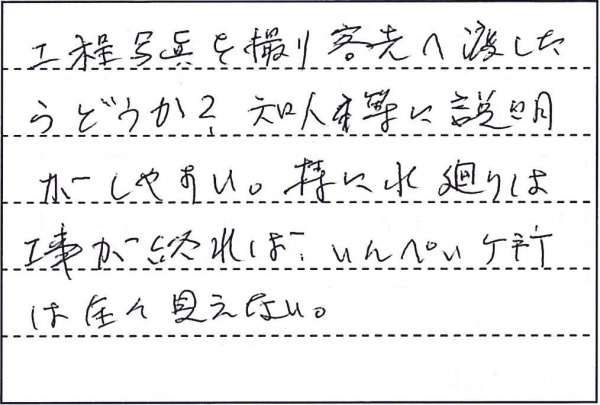 工程写真を撮り客先へ渡した
らどうか？ 知人等に説明
がしやすい。特に水廻りは
工事が終れば、いんぺいケ所
は全く見えない。